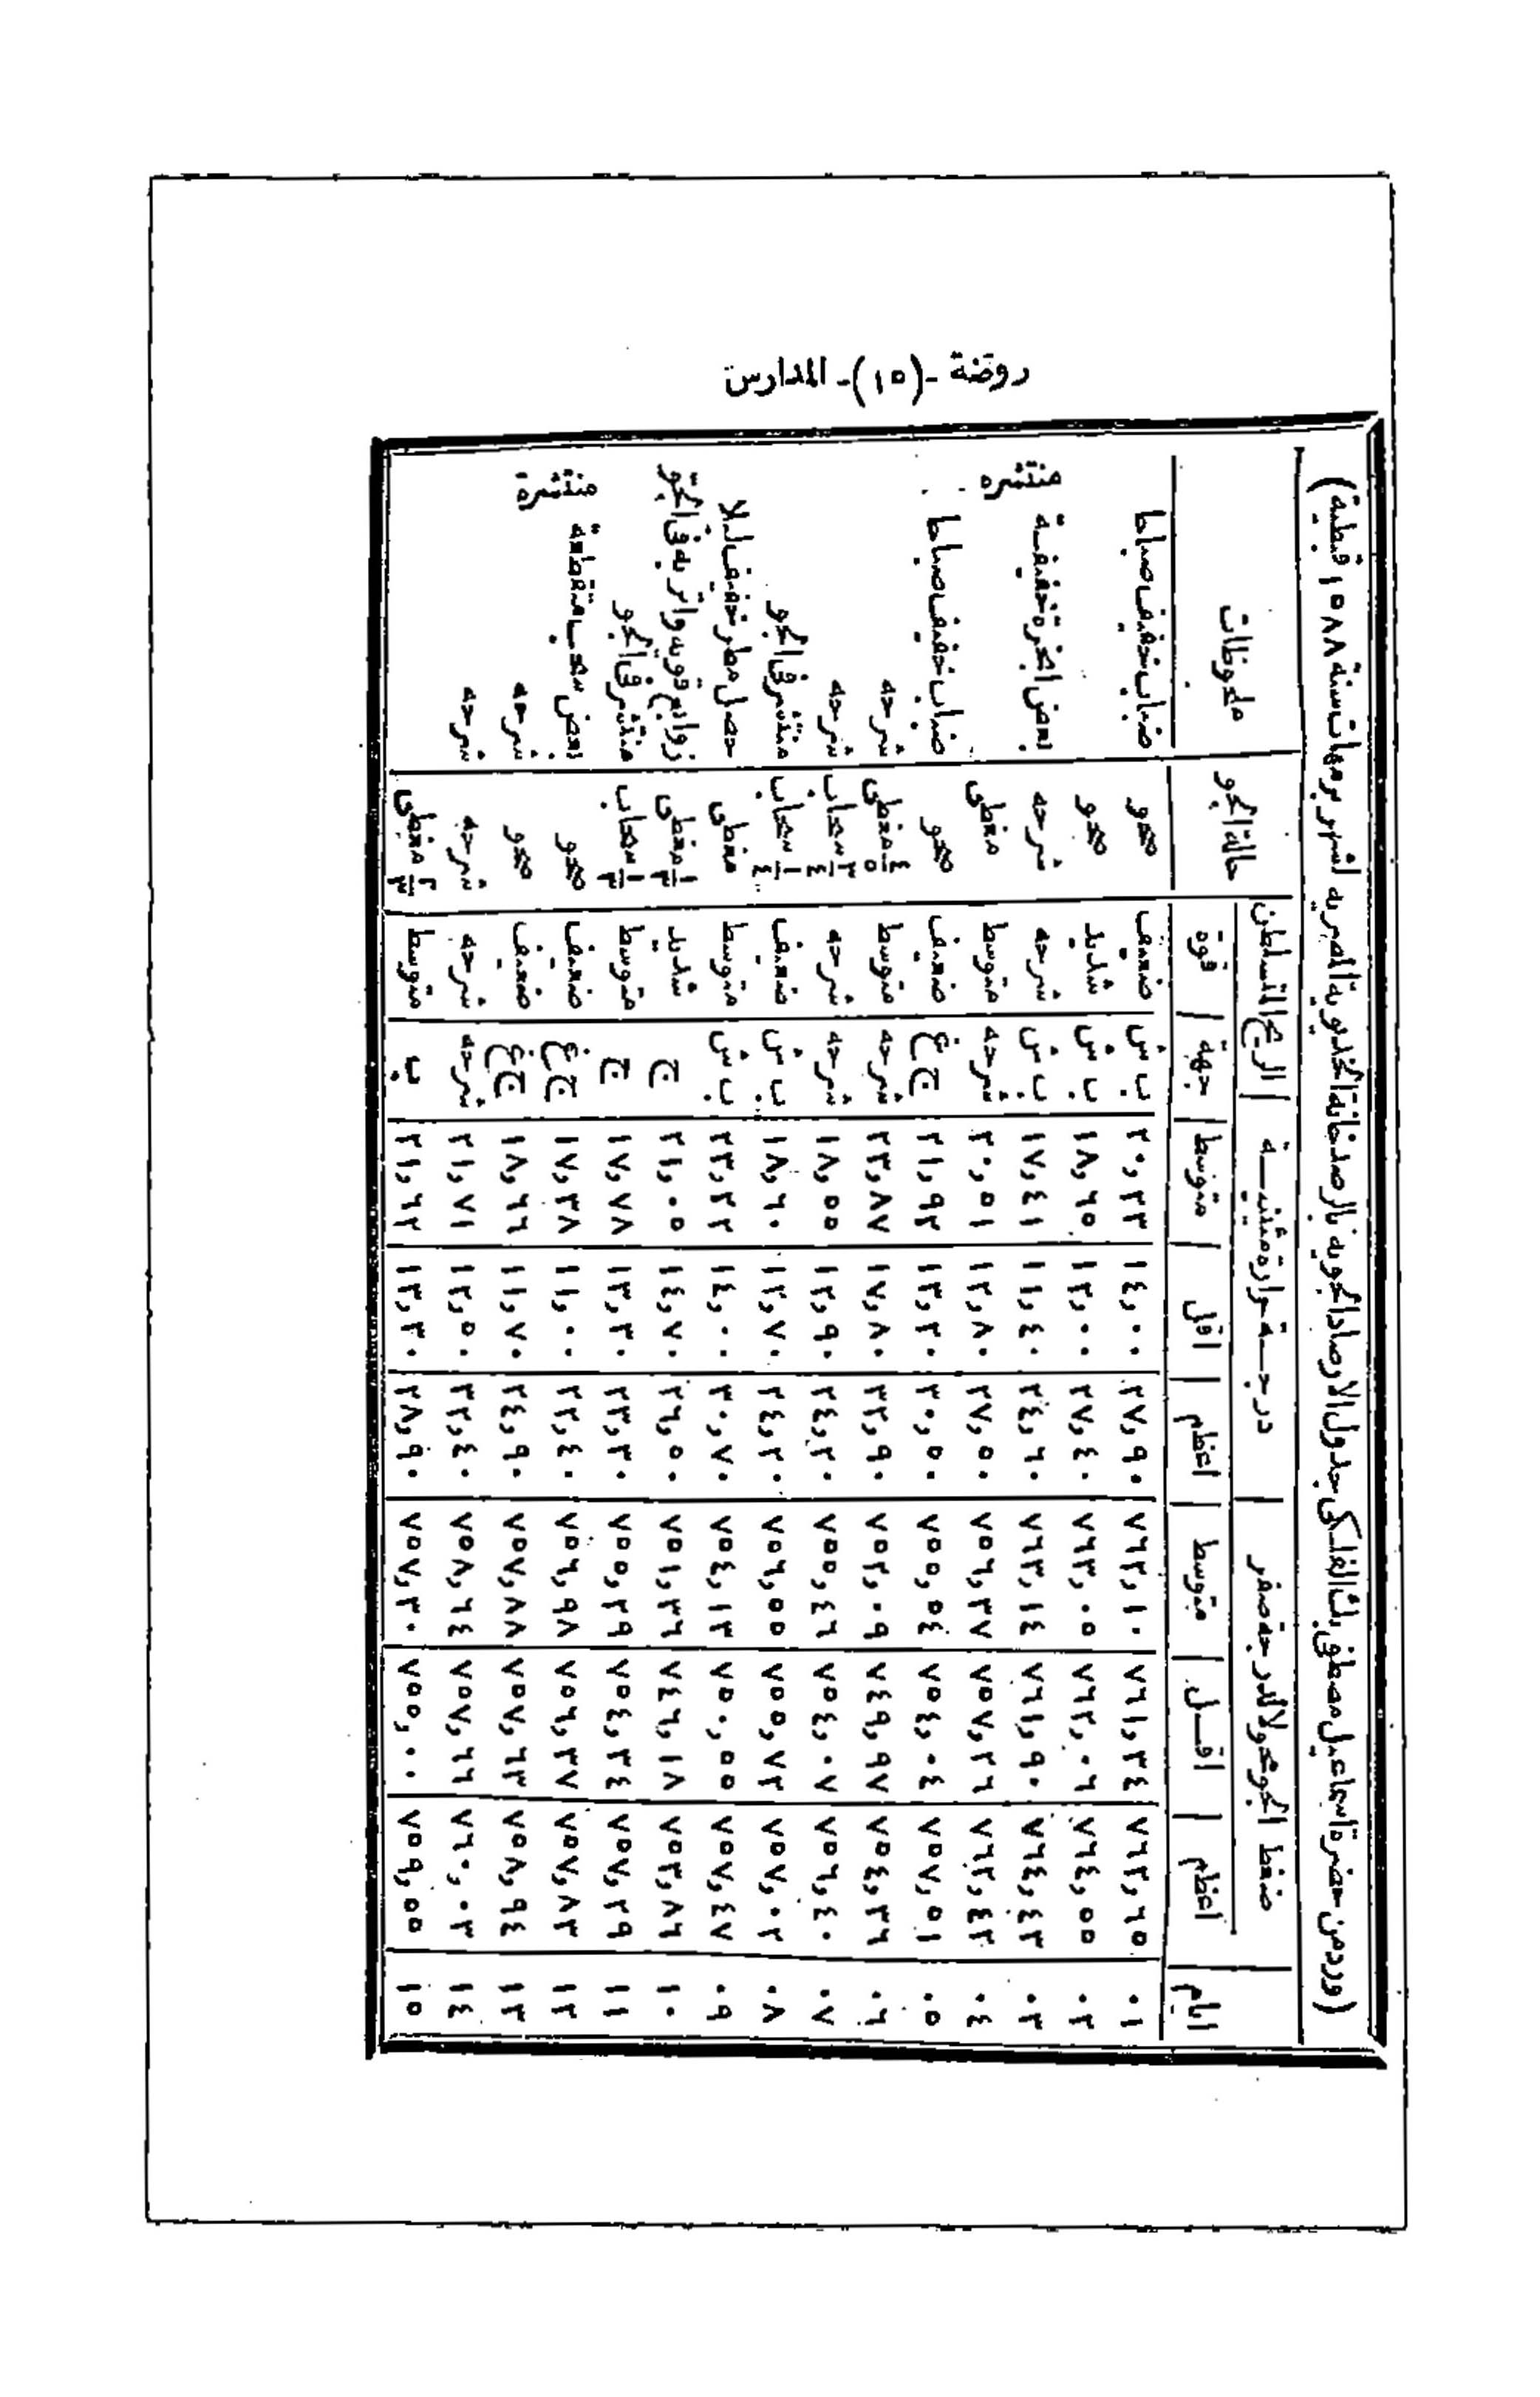 روضة -(١٥)- المدارس
(ورد من حضرة اسماعيل مصطفى بك الفلكى جدول الارصاد الجويه بالرصدخانة الخديوية المصريه لشهر برمهات سنة ١٥٨٨ قبطية)
ايام | ضغط الجو محولا لدرجة صفر | درجــة حرارة مئينيــة | الريح المتسلطن | حالة الجو | ملحوظات
اعظم | اقــل | متوسط | اعظم | اقل | متوسط | جهة | قوة
٠١ ٧٦٣,٦٥ ٧٦١,٣٤ ٧٦٢,١٠ ٢٧,٩٠ ١٤,٠٠ ٢٠,٢٣ ب ش ضعيف صحو ضباب خفيف صباحا
٠٢ ٧٦٤,٥٥ ٧٦٢,٠٦ ٧٦٣,٠٥ ٢٧,٤٠ ١٢,٠٠ ١٨,٦٥ ب ش شديد صحو
٠٣ ٧٦٤,٤٣ ٧٦١,٩٠ ٧٦٣,١٤ ٢٤,٦٠ ١١,٤٠ ١٧,٤١ ب ش شرحه شرحه بعض ابخرة خفيفــة منتشره
٠٤ ٧٦٢,٤٢ ٧٥٧,٢٦ ٧٥٦,٣٧ ٢٧,٥٠ ١٢,٨٠ ٢٠,٥١ شرحه متوسط مغطى
٠٥ ٧٥٧,٥١ ٧٥٤,٠٤ ٧٥٥,٥٤ ٣٠,٥٠ ١٣,٢٠ ٢١,٩٢ ج غ ضعيف صحو ضباب خفيف صباحا
٠٦ ٧٥٤,٣٦ ٧٤٩,٩٧ ٧٥٢,٠٩ ٣٢,٩٠ ١٧,٨٠ ٢٣,٨٧ شرحه متوسط ٤/٥ مغطى شرحه
٠٧ ٧٥٦,٤٠ ٧٥٤,٠٧ ٧٥٥,٤٦ ٢٤,٢٠ ١٢,٩٠ ١٨,٥٥ شرحه شرحه ٣/٤ سحاب شرحه
٠٨ ٧٥٧,٠٢ ٧٥٥,٧٢ ٧٥٦,٥٥ ٢٤,٢٠ ١٢,٧٠ ١٨,٦٠ ب ش ضعيف ١/٤ سحاب منتشر فى الجو
٠٩ ٧٥٧,٤٧ ٧٥٠,٥٥ ٧٥٤,١٣ ٣٠,٧٠ ١٤,٠٠ ٢٣,٢٢ ب ش متوسط مغطى حصل مطر خفيف ليلا
١٠ ٧٥٣,٨٦ ٧٤٦,١٨ ٧٥١,٣٦ ٢٦,٥٠ ١٤,٧٠ ٢١,٠٥ ج شديد ١/٣ مغطى زوابع قويه واتربه فى الجو
١١ ٧٥٧,٢٩ ٧٥٤,٣٤ ٧٥٥,٢٩ ٢٣,٣٠ ١٣,٢٠ ١٧,٧٨ ج متوسط ١/٣ سحاب منتشر فى الجو
١٢ ٧٥٧,٨٣ ٧٥٦,٣٧ ٧٥٦,٩٨ ٢٢,٤٠ ١١,٠٠ ١٧,٣٨ ج غ ضعيف صحو بعض سحب متقطعة منتشرة
١٣ ٧٥٨,٩٤ ٧٥٧,٦٣ ٧٥٧,٨٨ ٢٤,٩٠ ١١,٧٠ ١٨,٦٦ ج غ ضعيف صحو شرحه
١٤ ٧٦٠,٠٣ ٧٥٧,٦٦ ٧٥٨,٦٤ ٣٢,٤٠ ١٢,٥٠ ٢١,٧١ شرحه شرحه شرحه شرحه
١٥ ٧٥٩,٥٥ ٧٥٥,٠٠ ٧٥٧,٣٠ ٢٨,٩٠ ١٣,٣٠ ٢١,٦٢ ب متوسط ٢/٣ مغطى